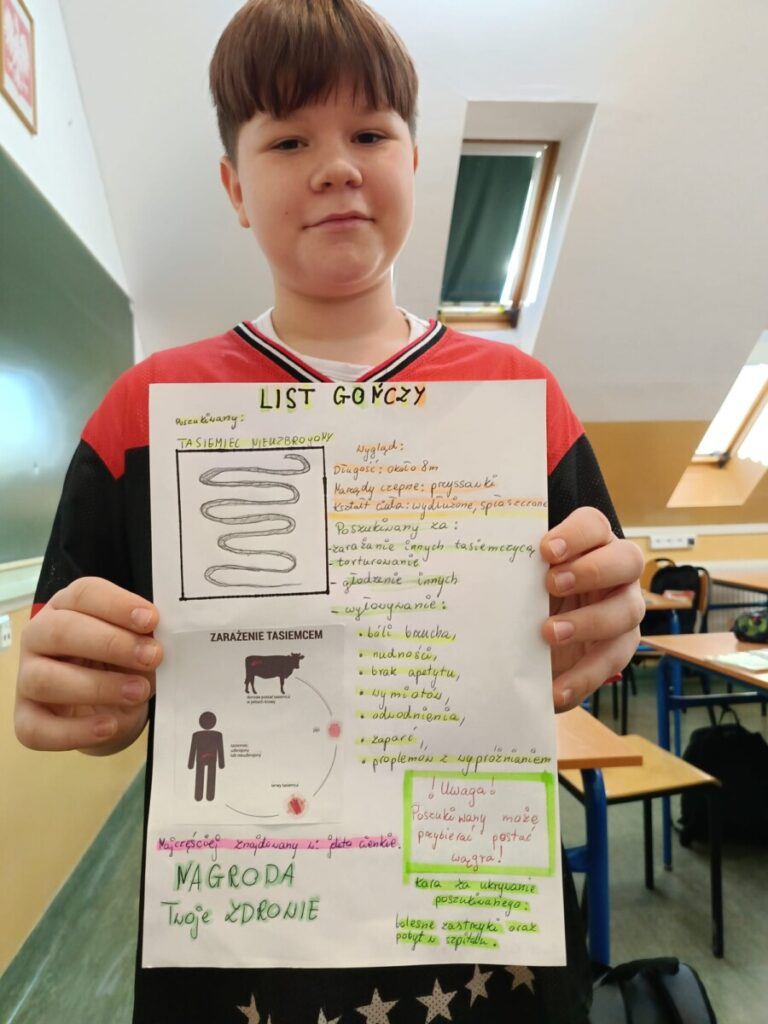 LIST GOŃCZY
Poszukiwany:
TASIEMIEC NIEUZBROJONY
Wygląd:
Długość: około 8m
Narządy czepne: przyssawki
Kształt ciała: wydłużone, spłaszczone
Poszukiwany za:
-zarażanie innych tasiemczycą
- torturowanie
- głodzenie innych
- wywoływanie:
• bóli brzucha,
• nudności,
• brak apetytu,
• wymiotów,
• odwodnienia,
• zaparć,
• proplemów z wypróżnianiem
ZARAŻENIE TASIEMCEM
tasiemiec
uzbrojony
lub nieuzbrojony
Najczęściej znajdowany w: jelita cienkie.
NAGRODA
Twoje ZDROWIE
! Uwaga !
Poszukiwany może
przybierać postać
wągra!
Kara za ukrywanie
poszukiwanego:
bolesne zastrzyki oraz
pobyt w szpitalu.